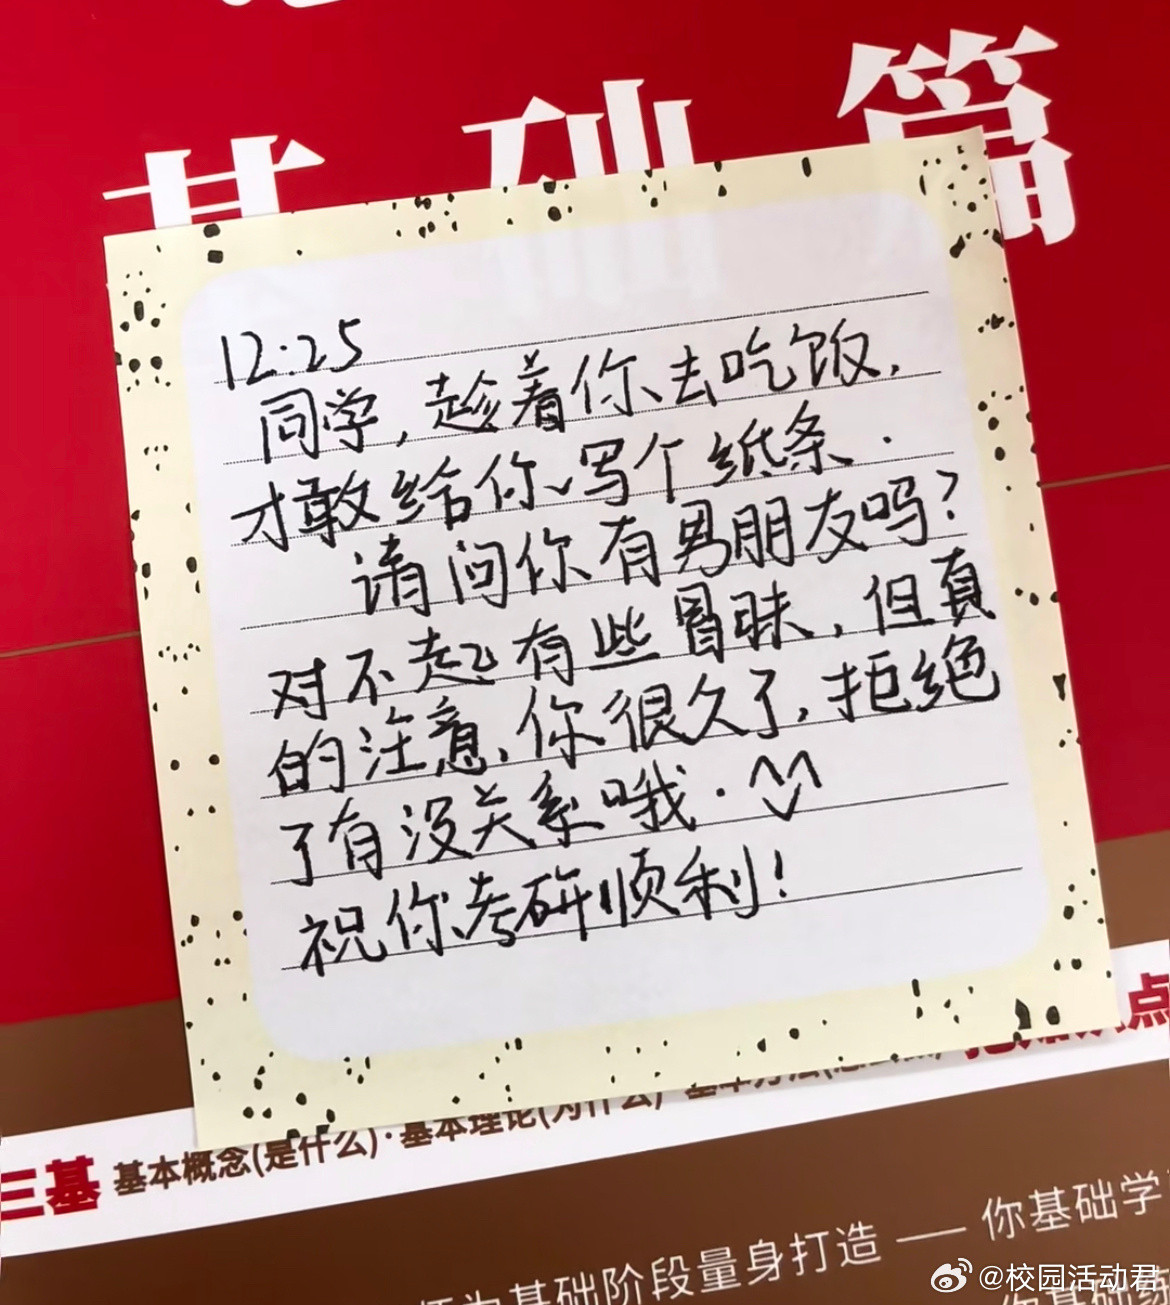 基础篇
12:25
同学,趁着你去吃饭,
才敢给你写个纸条.
请问你有男朋友吗?
对不起有些冒昧,但真
的注意,你很久了,拒绝
了有没关系哦.
祝你考研顺利!
点
三基 基本概念(是什么)·基本理论(为什么)·基本方法
基础阶段量身打造 —— 你基础学
你基础
@校园活动君